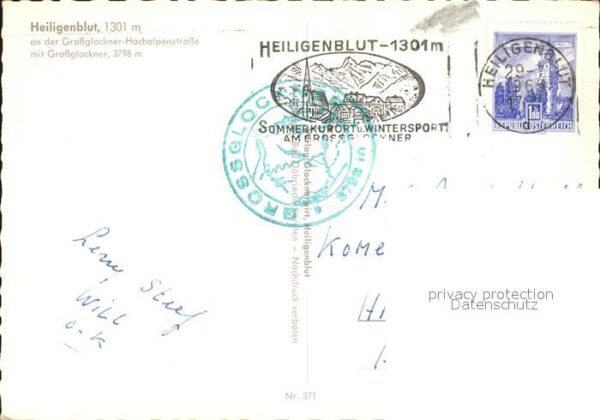 Heiligenblut, 1301 m
an der Großglockner-Hochalpenstraße
mit Großglockner, 3798 m
HEILIGENBLUT-1301m
SOMMERKURORT U. WINTERSPORT
AM GROSSGLOCKNER
HEILIGENBLUT
29.
196
17
1.80
REPUBLIK ÖSTERREICH
GROSSGLOCK
3798 m
Heiligenblut
Nachdruck verboten
M.
Kome
H
privacy protection
Datenschutz
Will
o.k
Nr. 371